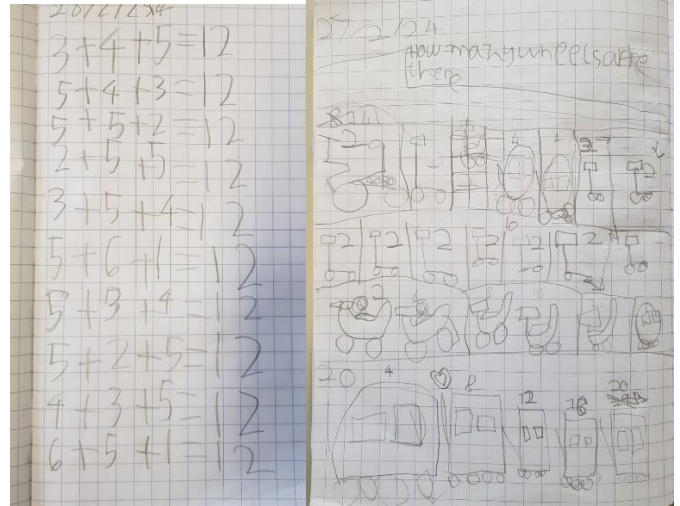 3+4+5=12
5+4+3=12
5+5+2=12
2+5+5=12
3+5+4=12
5+6+1=12
5+3+4=12
5+2+5=12
4+3+5=12
6+5+1=12
27/2/24
How many wheels are
there
2 2 2 2 2
20 4 8 12 16 20